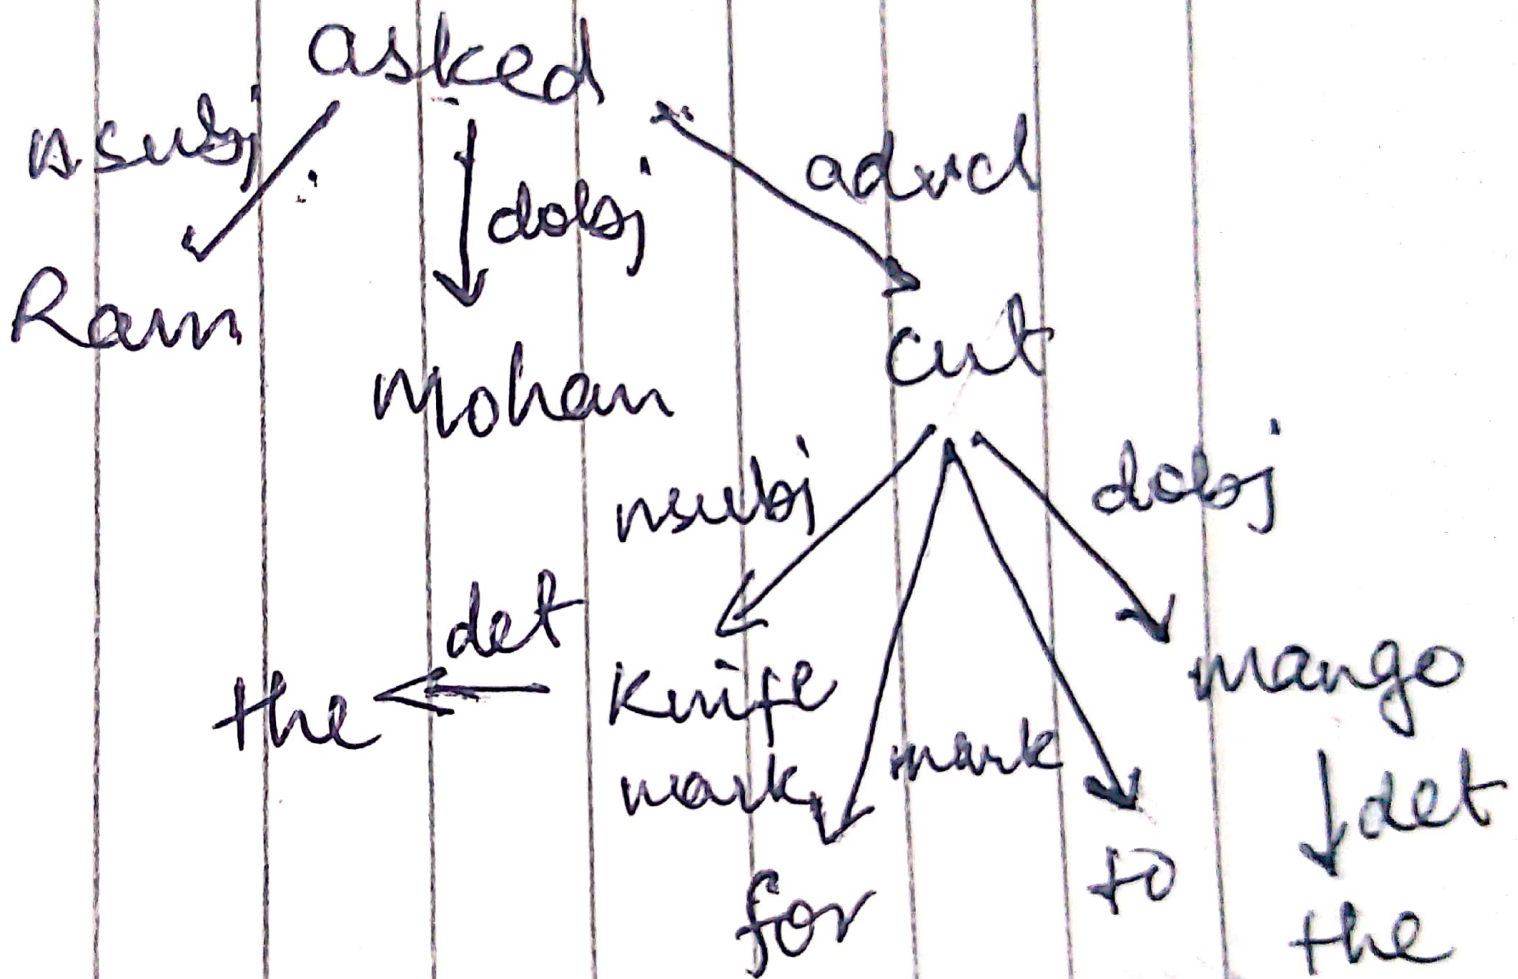 asked
nsubj
dobj
advcl
Ram
Mohan
cut
nsubj
dobj
det
the
knife
mango
mark
mark
det
for
to
the